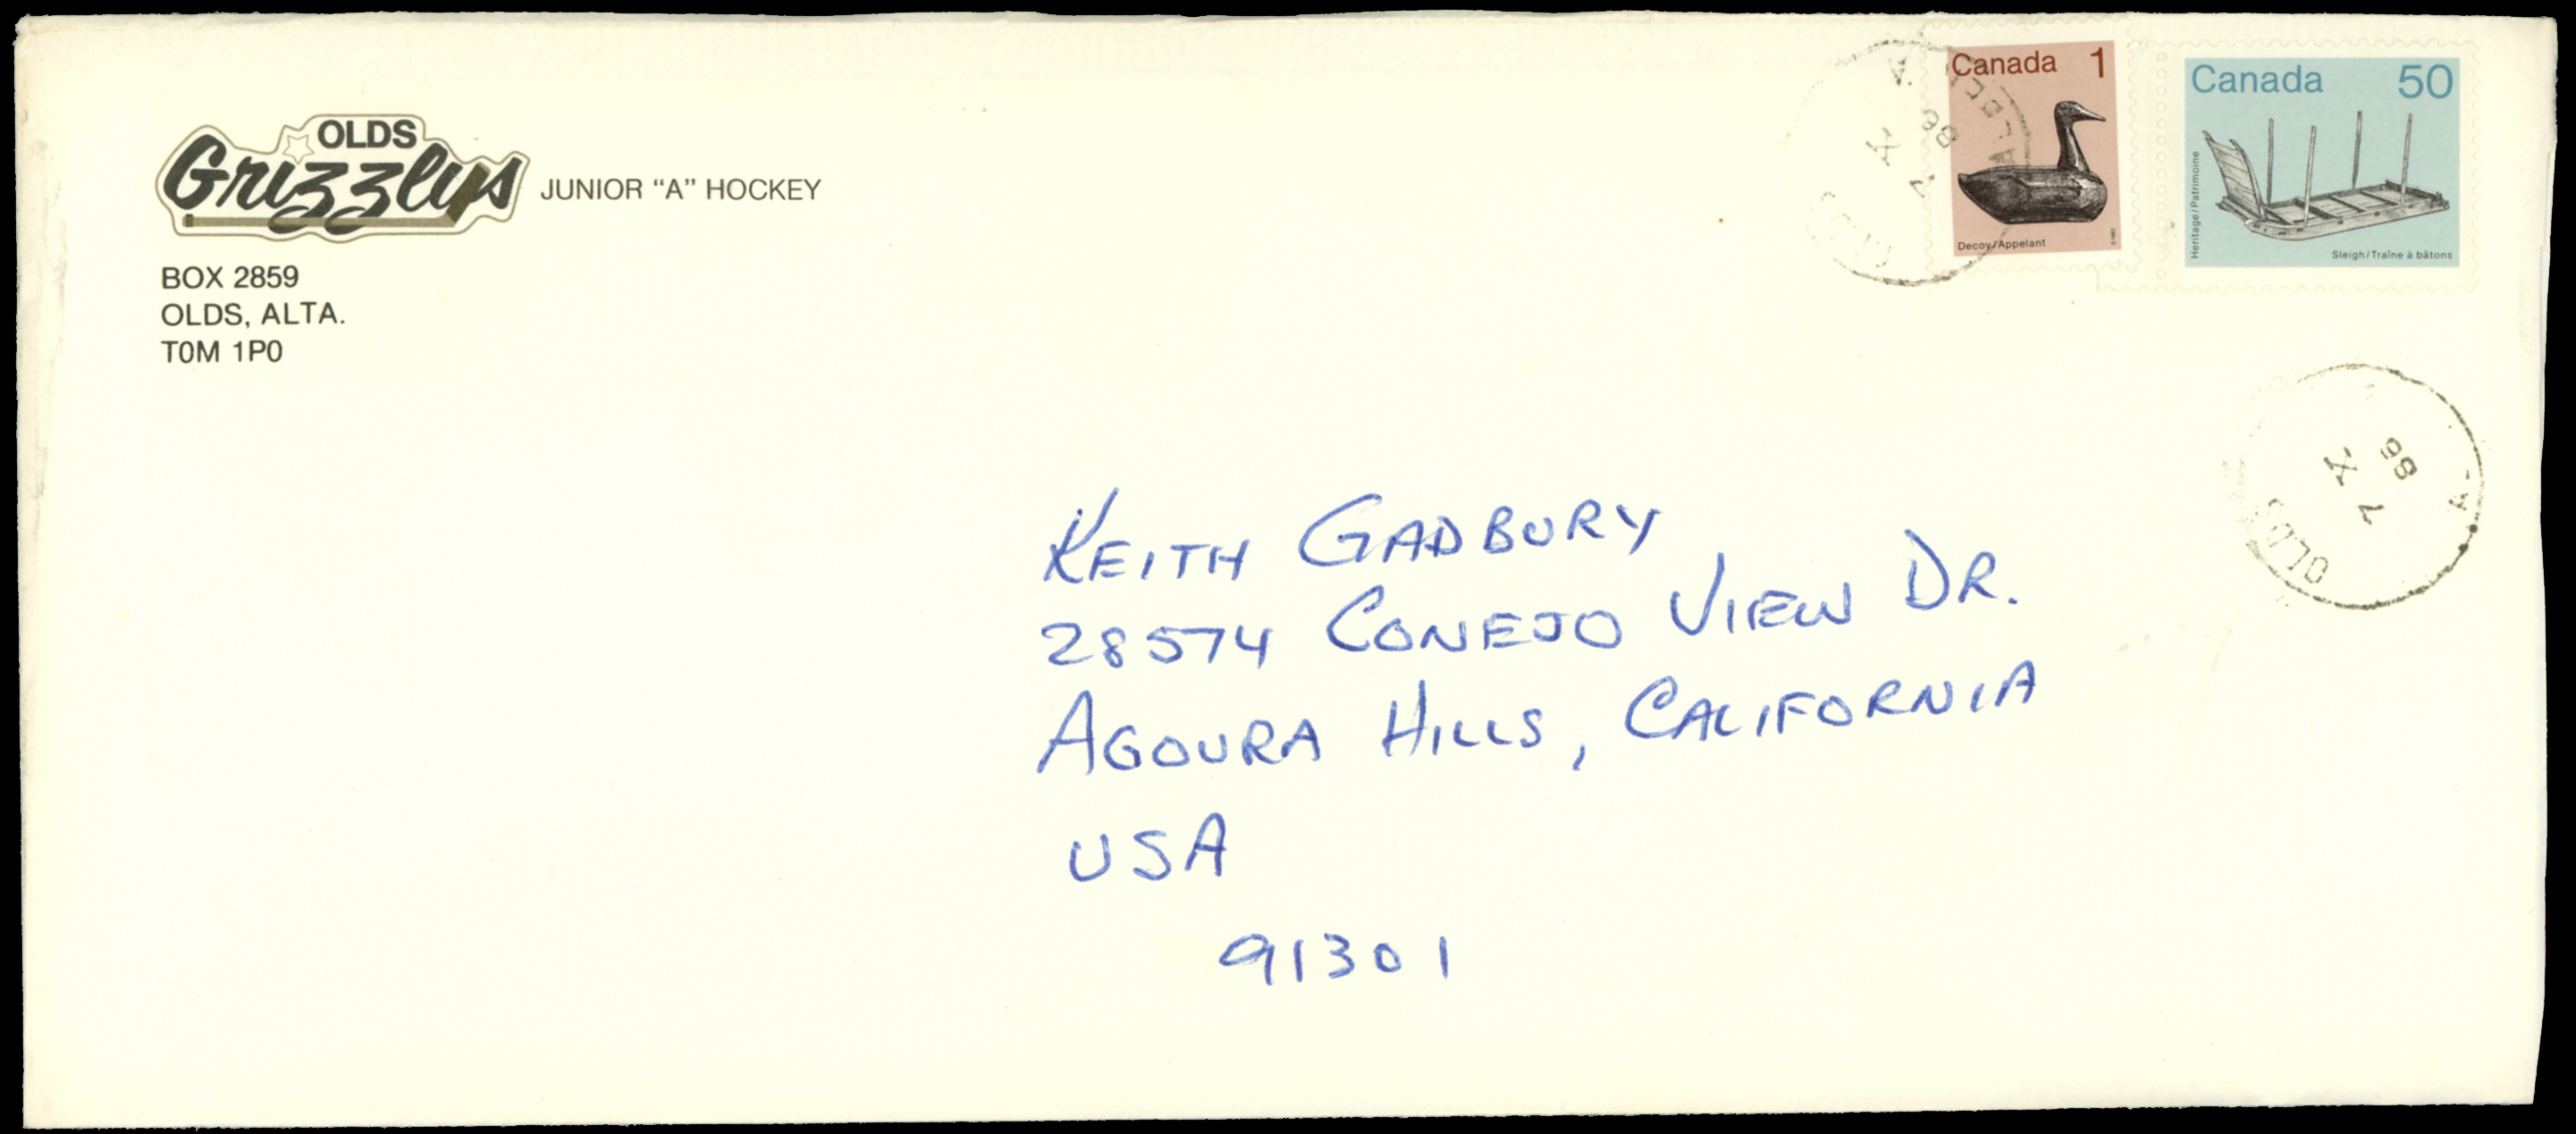 OLDS
Grizzlys JUNIOR “A” HOCKEY
BOX 2859
OLDS, ALTA.
T0M 1P0
Canada 1
Decoy/Appelant
Canada 50
Heritage/Patrimoine
Sleigh/Traîne à bâtons
OLDS
7
X
86
OLDS
7
X
86
KEITH GADBURY
28574 CONEJO VIEW DR.
AGOURA HILLS, CALIFORNIA
USA
91301